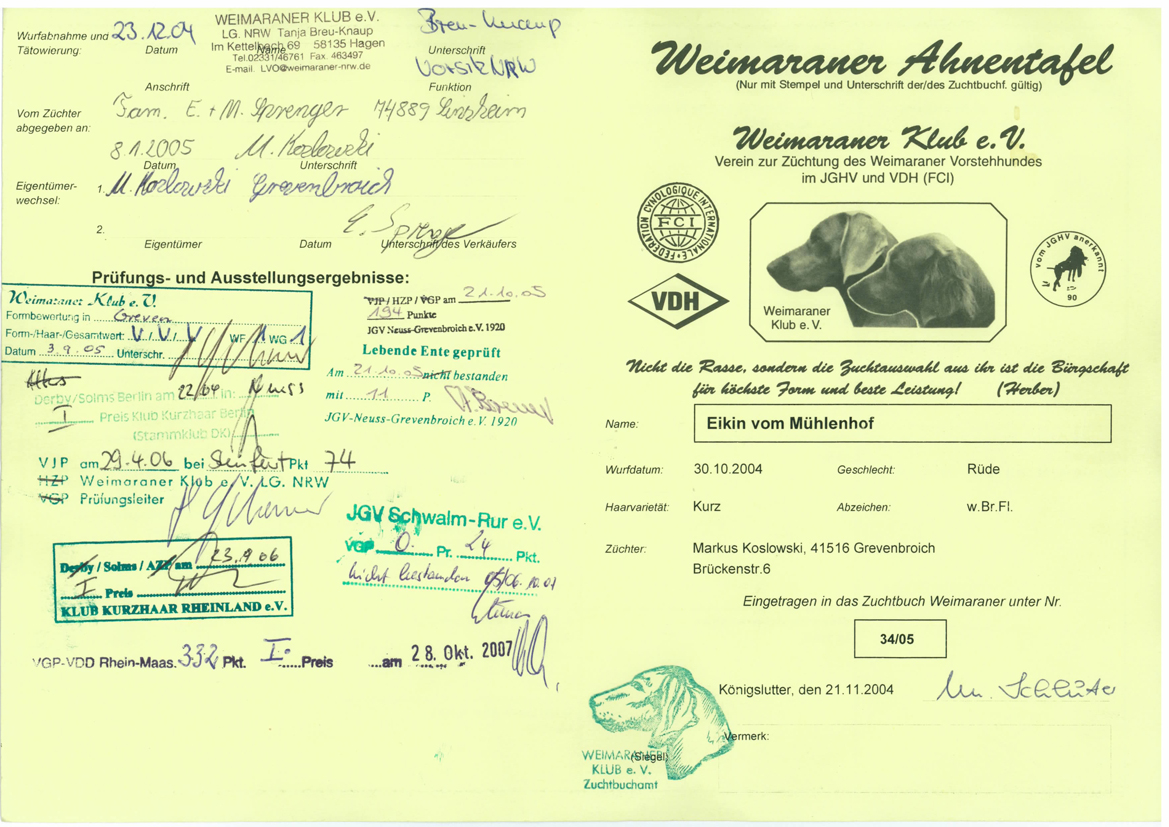 Wurfabnahme und 23.12.04
Tätowierung: Datum
WEIMARANER KLUB e.V.
LG. NRW Tanja Breu-Knaup
Im Kettelbach 69 58135 Hagen
Name
Tel.02331/46761 Fax. 463497
E-mail. LVO@weimaraner-nrw.de
Breu-Knaup
Unterschrift
Funktion
Anschrift
Vom Züchter
abgegeben an:
Fam. E. + M. Sprenger 74889 Sinsheim
8.1.2005 M. Koslowski
Datum Unterschrift
Eigentümer-
wechsel:
1. M. Koslowski Grevenbroich
2. E. Sprenger
Eigentümer Datum Unterschrift des Verkäufers
Prüfungs- und Ausstellungsergebnisse:
Weimaraner Klub e.V.
Formbewertung in Greven
Form-/Haar-/Gesamtwert: V, V, V WF 1 WG 1
Datum 3.9.05 Unterschr.
VJP / HZP / VGP am 21.10.05
194 Punkte
JGV Neuss-Grevenbroich e.V. 1920
Lebende Ente geprüft
Am 21.10.05 nicht bestanden
mit 11 P.
JGV-Neuss-Grevenbroich e.V. 1920
Derby/Solms Berlin am 22/04 in: Neuss
I Preis Klub Kurzhaar Berlin
(Stammklub DK)
VJP am 29.4.06 bei Steinfurt Pkt 74
HZP Weimaraner Klub e.V. LG. NRW
VGP Prüfungsleiter
JGV Schwalm-Rur e.V.
VGP 0. Pr. 24 Pkt.
nicht bestanden
Derby / Solms / AZP am 23.9.06
I Preis
KLUB KURZHAAR RHEINLAND e.V.
VGP-VDD Rhein-Maas. 332 Pkt. I. Preis am 28. Okt. 2007
Weimaraner Ahnentafel
(Nur mit Stempel und Unterschrift der/des Zuchtbuchf. gültig)
Weimaraner Klub e.V.
Verein zur Züchtung des Weimaraner Vorstehhundes
im JGHV und VDH (FCI)
FEDERATION CYNOLOGIQUE INTERNATIONALE
FCI
VDH
Weimaraner
Klub e.V.
vom JGHV anerkannt
90
Nicht die Rasse, sondern die Zuchtauswahl aus ihr ist die Bürgschaft
für höchste Form und beste Leistung! (Herber)
Name: Eikin vom Mühlenhof
Wurfdatum: 30.10.2004 Geschlecht: Rüde
Haarvarietät: Kurz Abzeichen: w.Br.Fl.
Züchter: Markus Koslowski, 41516 Grevenbroich
Brückenstr.6
Eingetragen in das Zuchtbuch Weimaraner unter Nr.
34/05
Königslutter, den 21.11.2004
Vermerk:
(Siegel)
WEIMARANER
KLUB e. V.
Zuchtbuchamt